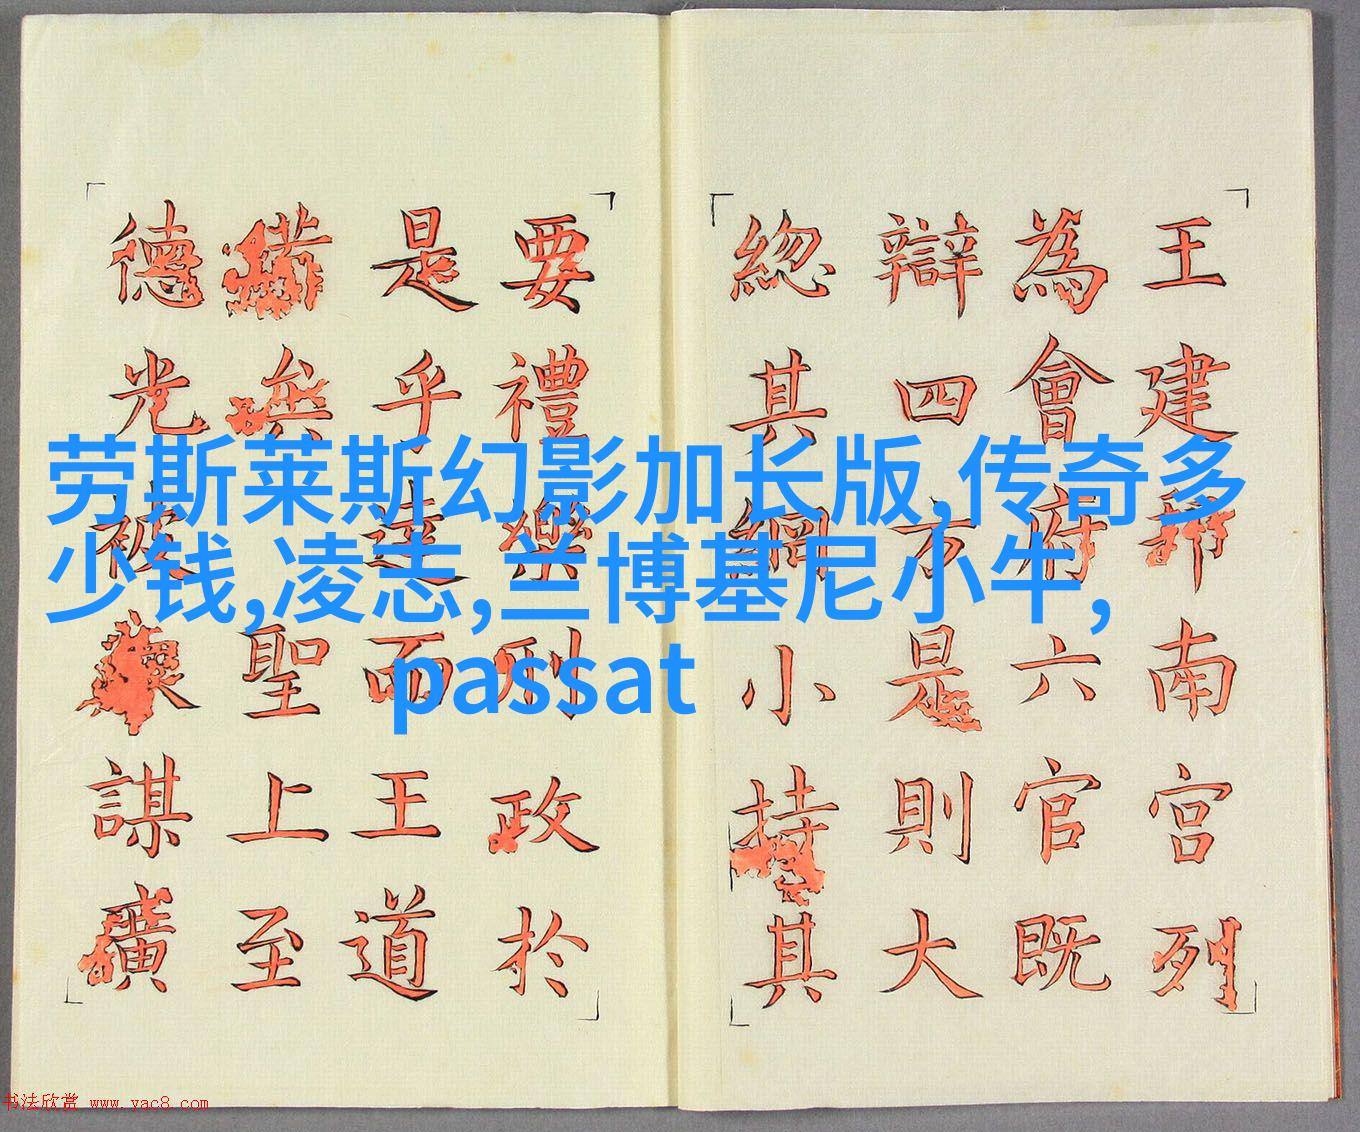 劳斯莱斯幻影加长版,传奇多
少钱,凌志,兰博基尼小牛,
passat
王建南宫列
為會府六官既
辯四方是則大
緫其綱小持其
要禮樂刑政於
是乎達而王道
聖上至
德光被謀
书法欣赏 www.yac8.com